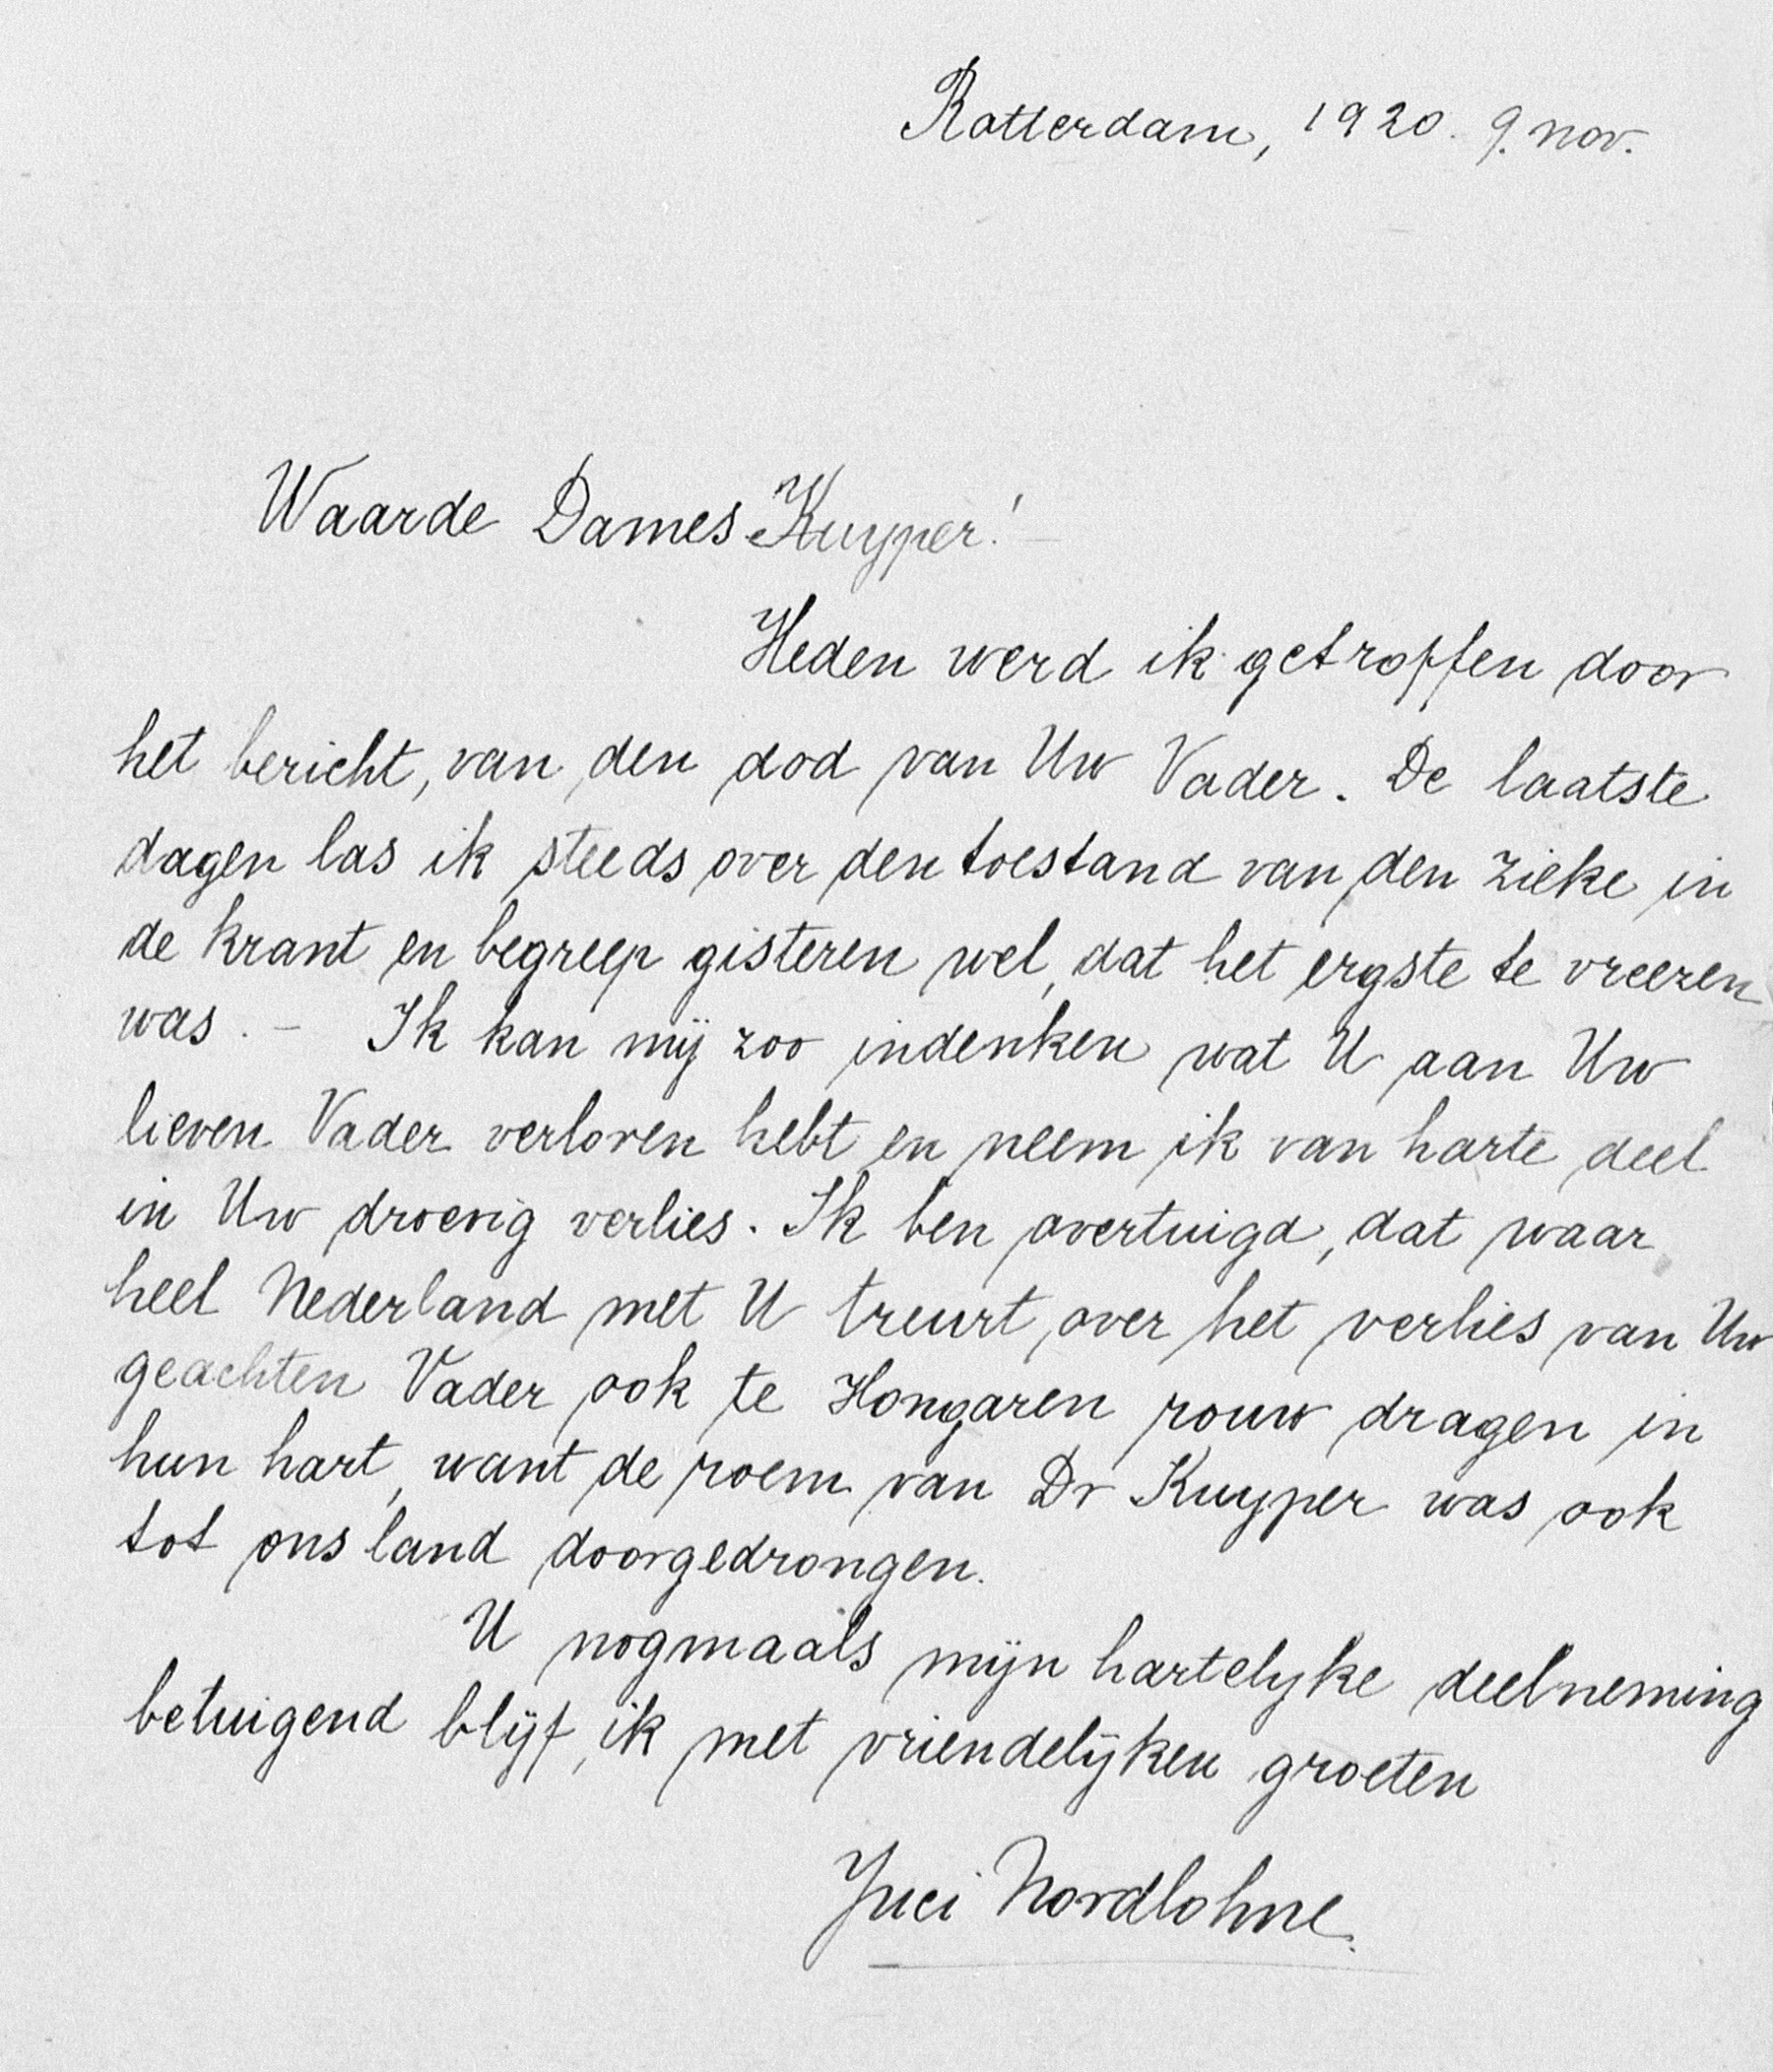 Rotterdam, 1920. 9. nov.
Waarde Dames Kuyper! –
Heden werd ik getroffen door
het bericht, van den dod van Uw Vader. De laatste
dagen las ik steeds over den toestand van den zieke in
de krant en begreep gisteren wel, dat het ergste te vreezen
was. – Ik kan mij zoo indenken wat U aan Uw
lieven Vader verloren hebt en neem ik van harte deel
in Uw droevig verlies. Ik ben overtuigd, dat waar
heel Nederland met U treurt, over het verlies van Uw
geachten Vader ook te Hongaren rouw dragen in
hun hart, want de roem van Dr Kuyper was ook
tot ons land doorgedrongen.
U nogmaals mijn hartelyke deelneming
betuigend blijf, ik met vriendelijken groeten
Juci Nordlohne.